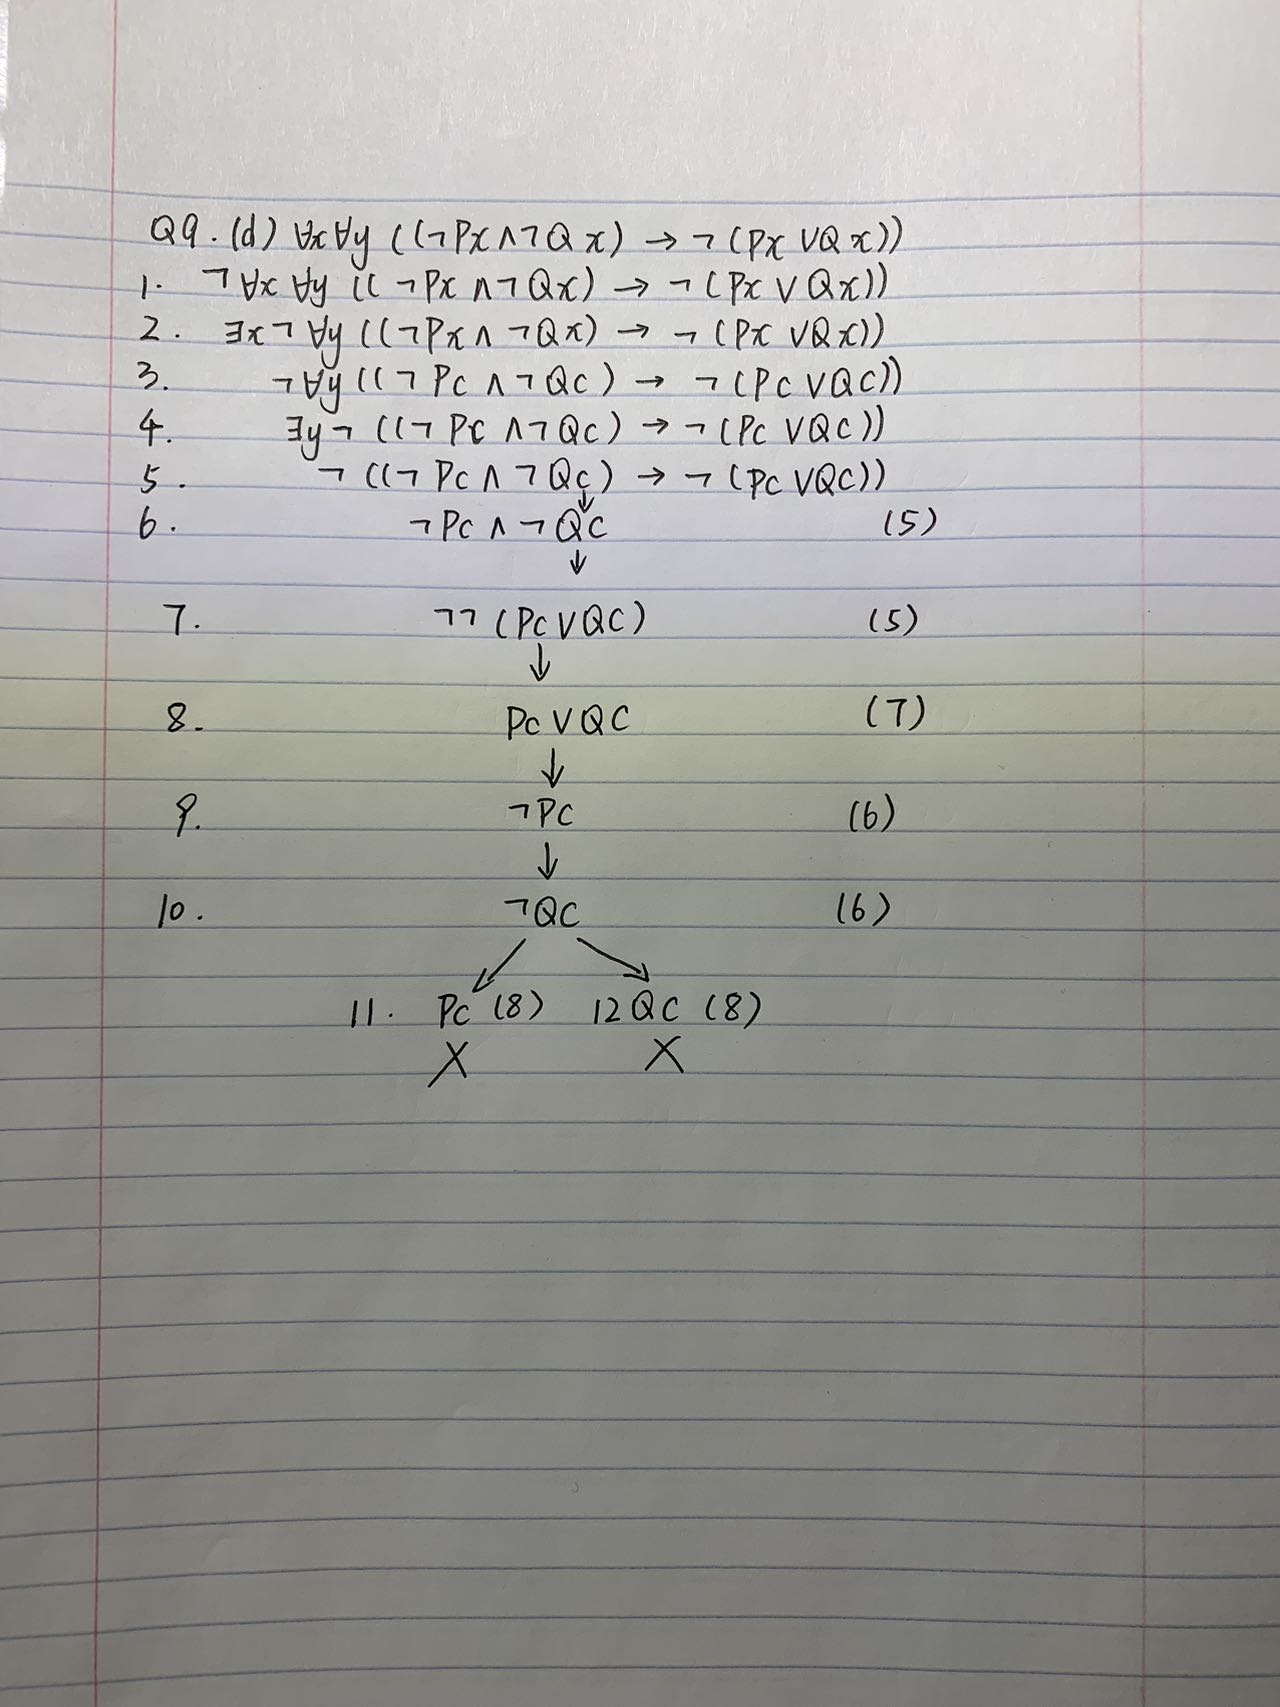 Q9. (d) ∀x∀y ((¬Px∧¬Qx) → ¬(Px∨Qx))
1. ¬∀x ∀y ((¬Px∧¬Qx) → ¬(Px∨Qx))
2. ∃x¬∀y ((¬Px∧¬Qx) → ¬(Px∨Qx))
3. ¬∀y ((¬Pc∧¬Qc) → ¬(Pc∨Qc))
4. ∃y¬ ((¬Pc∧¬Qc) → ¬(Pc∨Qc))
5. ¬((¬Pc∧¬Qc) → ¬(Pc∨Qc))
↓
6. ¬Pc∧¬Qc (5)
↓
7. ¬¬(Pc∨Qc) (5)
↓
8. Pc∨Qc (7)
↓
9. ¬Pc (6)
↓
10. ¬Qc (6)
↙ ↘
11. Pc (8) 12 Qc (8)
X X